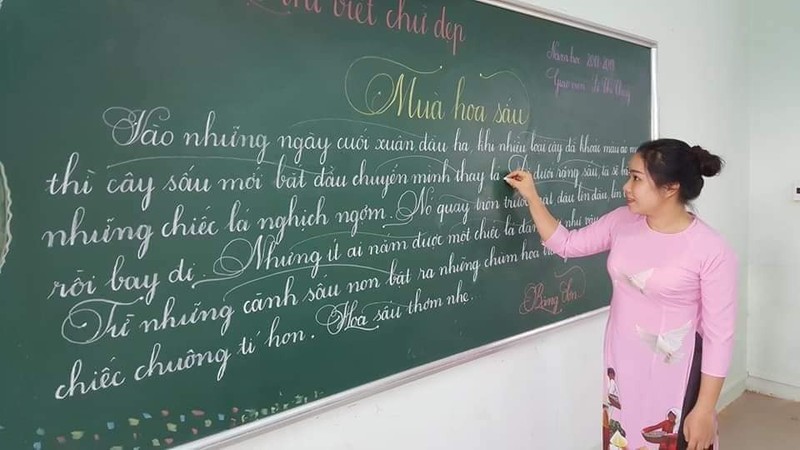 Thi viết chữ đẹp
Năm học 2018-2019
Giáo viên: Lê Thị
Mùa hoa sấu
Vào những ngày cuối xuân đầu hạ, khi nhiều loài cây đã khoác màu áo
thì cây sấu mới bắt đầu chuyển mình thay lá. Đi dưới rặng sấu, ta sẽ
những chiếc lá nghịch ngợm. Nó quay tròn trước mặt đậu lên đầu, lên
rồi bay đi. Nhưng ít ai nắm được một chiếc lá đang như vậy
Từ những cành sấu non bật ra những chùm hoa
chiếc chuông tí hon. Hoa sấu thơm nhẹ.
Băng Sơn